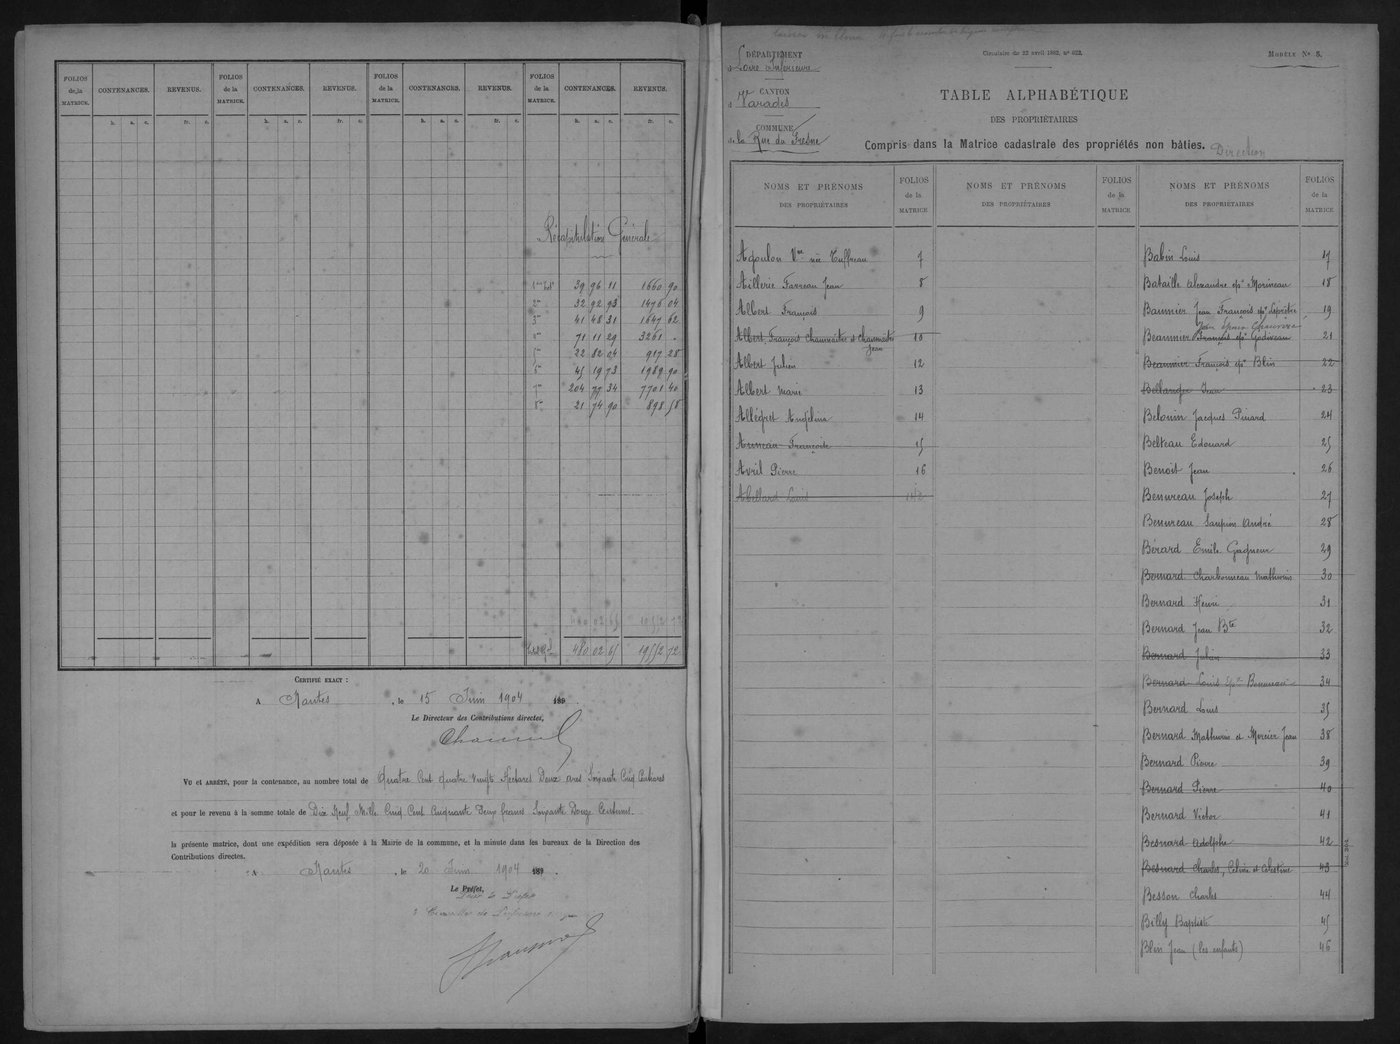 FOLIOS de la MATRICE. CONTENANCES. REVENUS. FOLIOS de la MATRICE. CONTENANCES. REVENUS. FOLIOS de la MATRICE. CONTENANCES. REVENUS. FOLIOS de la MATRICE. CONTENANCES. REVENUS.
h. a. c. fr. c. h. a. c. fr. c. h. a. c. fr. c. h. a. c. fr. c.
Récapitulation Générale
39 96 11 1660 90
2me 32 92 93 1476 04
3me 41 48 31 1647 62
71 11 29 3261 "
5me 22 82 04 917 28
6me 45 19 73 1989 90
7me 204 77 34 7701 40
8me 21 74 90 898 58
480 02 65 19552 72
Total Gal 480 02 65 19552 72
CERTIFIÉ EXACT :
A Nantes, le 15 Juin 1904 189 .
Le Directeur des Contributions directes,
VU et ARRÊTÉ, pour la contenance, au nombre total de Quatre Cent quatre vingts Hectares Deux ares Soixante Cinq Centiares
et pour le revenu à la somme totale de Dix Neuf Mille Cinq Cent Cinquante Deux francs Soixante Douze Centimes.
la présente matrice, dont une expédition sera déposée à la Mairie de la commune, et la minute dans les bureaux de la Direction des
Contributions directes.
A Nantes, le 20 Juin 1904 189 .
Le Préfet,
Pour le Préfet
Conseiller de Préfecture
DÉPARTEMENT
d Loire Inférieure
CANTON
d Varades
COMMUNE
de la Rue du Fresne
Circulaire du 22 avril 1882, n° 622.
MODÈLE N° 5.
TABLE ALPHABÉTIQUE
DES PROPRIÉTAIRES
Compris dans la Matrice cadastrale des propriétés non bâties.
Direction
NOMS ET PRÉNOMS DES PROPRIÉTAIRES FOLIOS de la MATRICE NOMS ET PRÉNOMS DES PROPRIÉTAIRES FOLIOS de la MATRICE NOMS ET PRÉNOMS DES PROPRIÉTAIRES FOLIOS de la MATRICE
Agoulon Vve née Tuffreau 7
Aillerie Favreau Jean 8
Albert François 9
Albert François Chauvaitre et Chauvaitre Jean 10
Albert Julien 12
Albert Marie 13
Allégret Angelina 14
Auneau Françoise 15
Avril Pierre 16
Abellard Louis
Babin Louis 17
Bataille Alexandre ép. Morineau 18
Baumier Jean François 19
Jean époux
Beaumier François ép. Godiveau 21
Beaumier François ép. Blin 22
Bellanger Jean 23
Belouin Jacques Pinard 24
Belteau Edouard 25
Benoit Jean 26
Benureau Joseph 27
Benureau Sanpion André 28
Bérard Emile Gagneur 29
Bernard Charbonneau Mathurin 30
Bernard Henri 31
Bernard Jean Bte 32
Bernard Julien 33
Bernard Louis Benureau 34
Bernard Louis 35
Bernard Mathurin et Mercier Jean 38
Bernard Pierre 39
Bernard Pierre 40
Bernard Victor 41
Besnard Adolphe 42
Besnard Charles, Céline et Célestine 43
Besson Charles 44
Billy Baptiste 45
Blin Jean (les enfants) 46